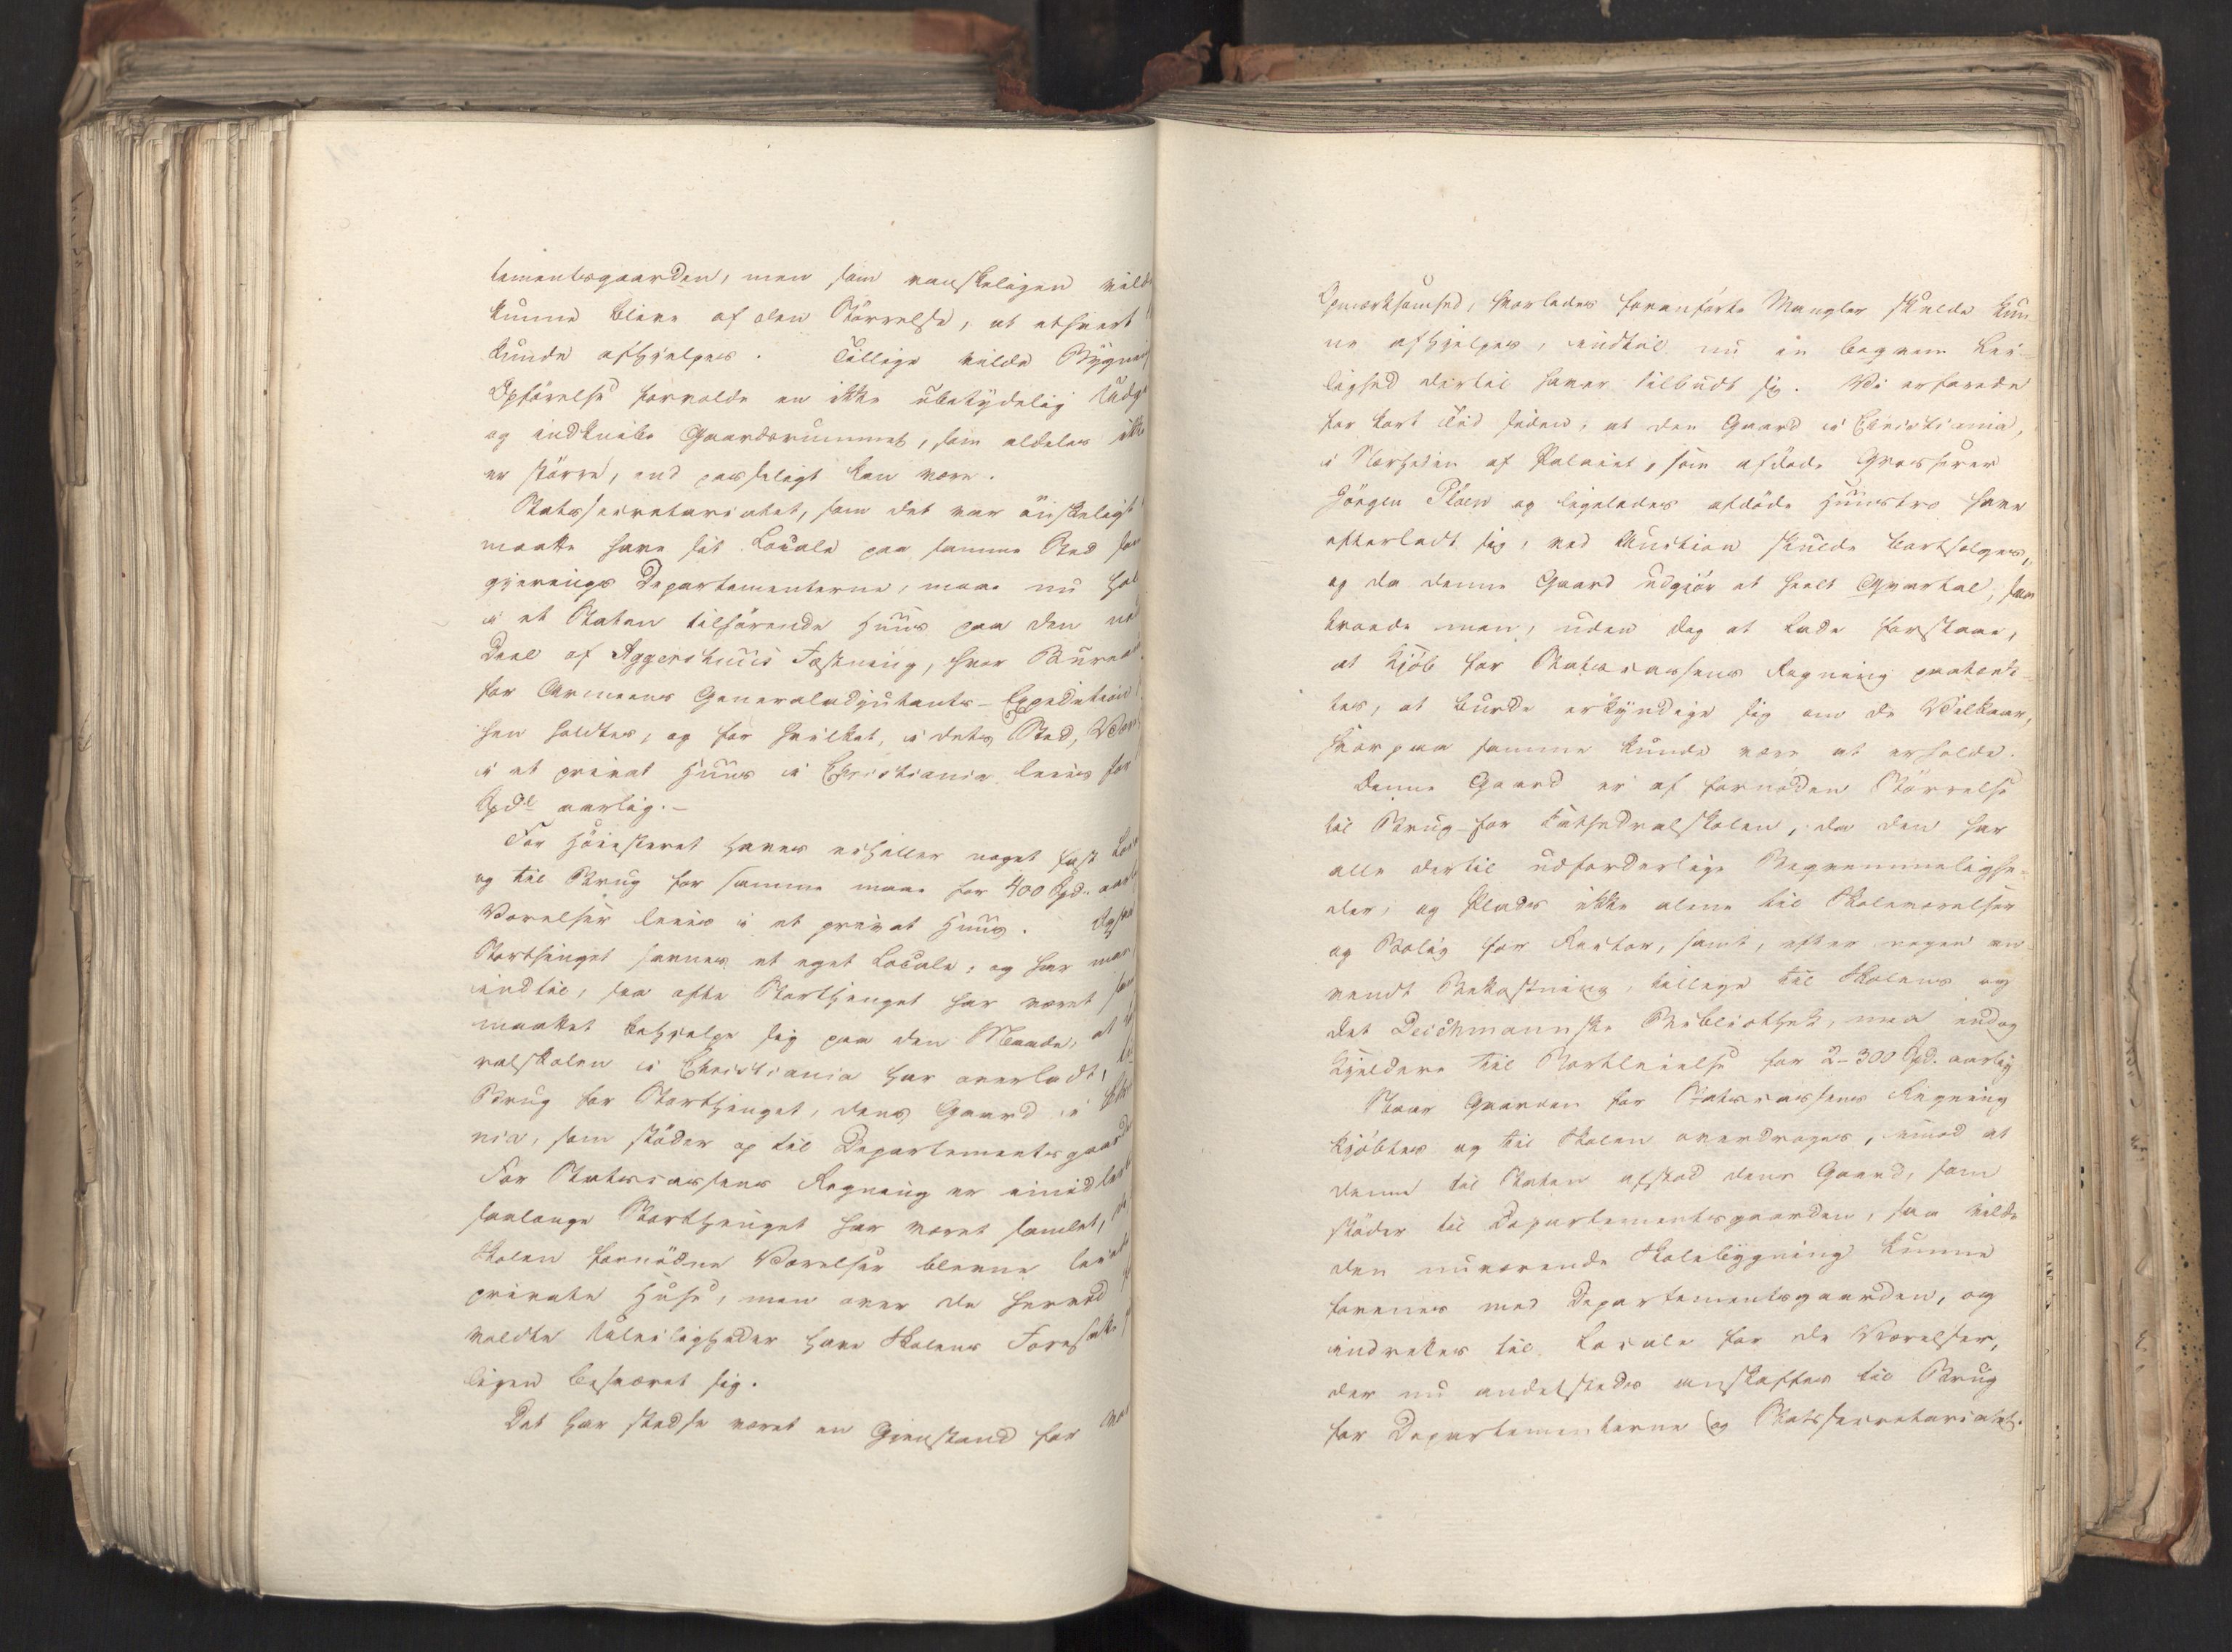 tementsgaarden, men som vanskeligen vilde
kunne blive af den Störrelse, at ethvert
kunde afhjelpes. Tillige vilde Bygnings
Opförelse forvolde en ikke ubetydelig Udg
og indknibe Gaardsrummet, som aldeles ikke
er större, end passeligt kan være.
Statssecretariatet, som det var önskeligt
maatte have sit Locale paa samme Sted som
gjerings Departementerne, maae nu hol
i et Staten tilhörende Huus paa den ned
Deel af Aggershuus Fæstning, hvor Bureau
for Armeens Generaladjutants-Expedition
hen holdtes, og for hvilket, i dets Sted, Vær
i et privat Huus i Christiania leies for
Spdl aarlig.-
For Höiesteret haves ei heller noget fast Loc
og til Brug for samme maae for 400 Spd. aarl
Værelser leies i et privat Huus. Ogsaa
Storthinget savner et eget Locale, og har man
indtil, saa ofte Storthinget har været sam
maattet behjelpe sig paa den Maade, at
ralskolen i Christiania har overladt, til
Brug for Storthinget, dens Gaard i Chri
nia, som stöder op til Departementsgaarde
For Statscassens Regning er imidlert
saalænge Storthinget har været samlet,
Skolen fornödne Værelser blevne leiet
private Huse, men over de herved
voldte Uleiligheder have Skolens Foresatte
ligen besværet sig.
Det har stedse været en Gjenstand for

Opmærksomhed, hvorledes foranförte Mangler skulde kun-
ne afhjelpes, indtil nu en beqvem Lei-
lighed dertil haver tilbudt sig. Vi erfarede
for kort Tid siden, at den Gaard i Christiania,
i Nærheden af Palaiet, som afdöde Grosserer
Jörgen Plöen og ligeledes afdöde Huustro have
efterladt sig, ved Auction skulde bortsælges,
og da denne Gaard udgjör et heelt Qvartal, saa
troede man, uden dog at lade forstaae,
at Kjöb for Statscassens Regning paatænk-
tes, at burde erkyndige sig om de Vilkaar,
hvorpaa samme kunde være at erholde.
Denne Gaard er af fornöden Störrelse
til Brug for Kathedralskolen, da den har
alle dertil udforderlige Beqvemmelighe-
der, og Plads ikke alene til Skoleværelser
og Bolig for Rector, samt, efter nogen an-
vendt Bekostning, tillige til Skolens og
det Deichmannske Bibliothek, men endog
Kjeldere til Bortleielse for 2-300 Spd. aarlig
Naar Gaarden for Statscassens Regning
kjöbtes og til Skolen overdroges, imod at
denne til Staten afstod dens Gaard, som
stöder til Departementsgaarden, saa vilde
den nuværende Skolebygning kunne
forenes med Departementsgaarden, og
indrettes til Locale for de Værelser,
der nu andetsteds anskaffes til Brug
for Departementerne og Statssecretariatet.